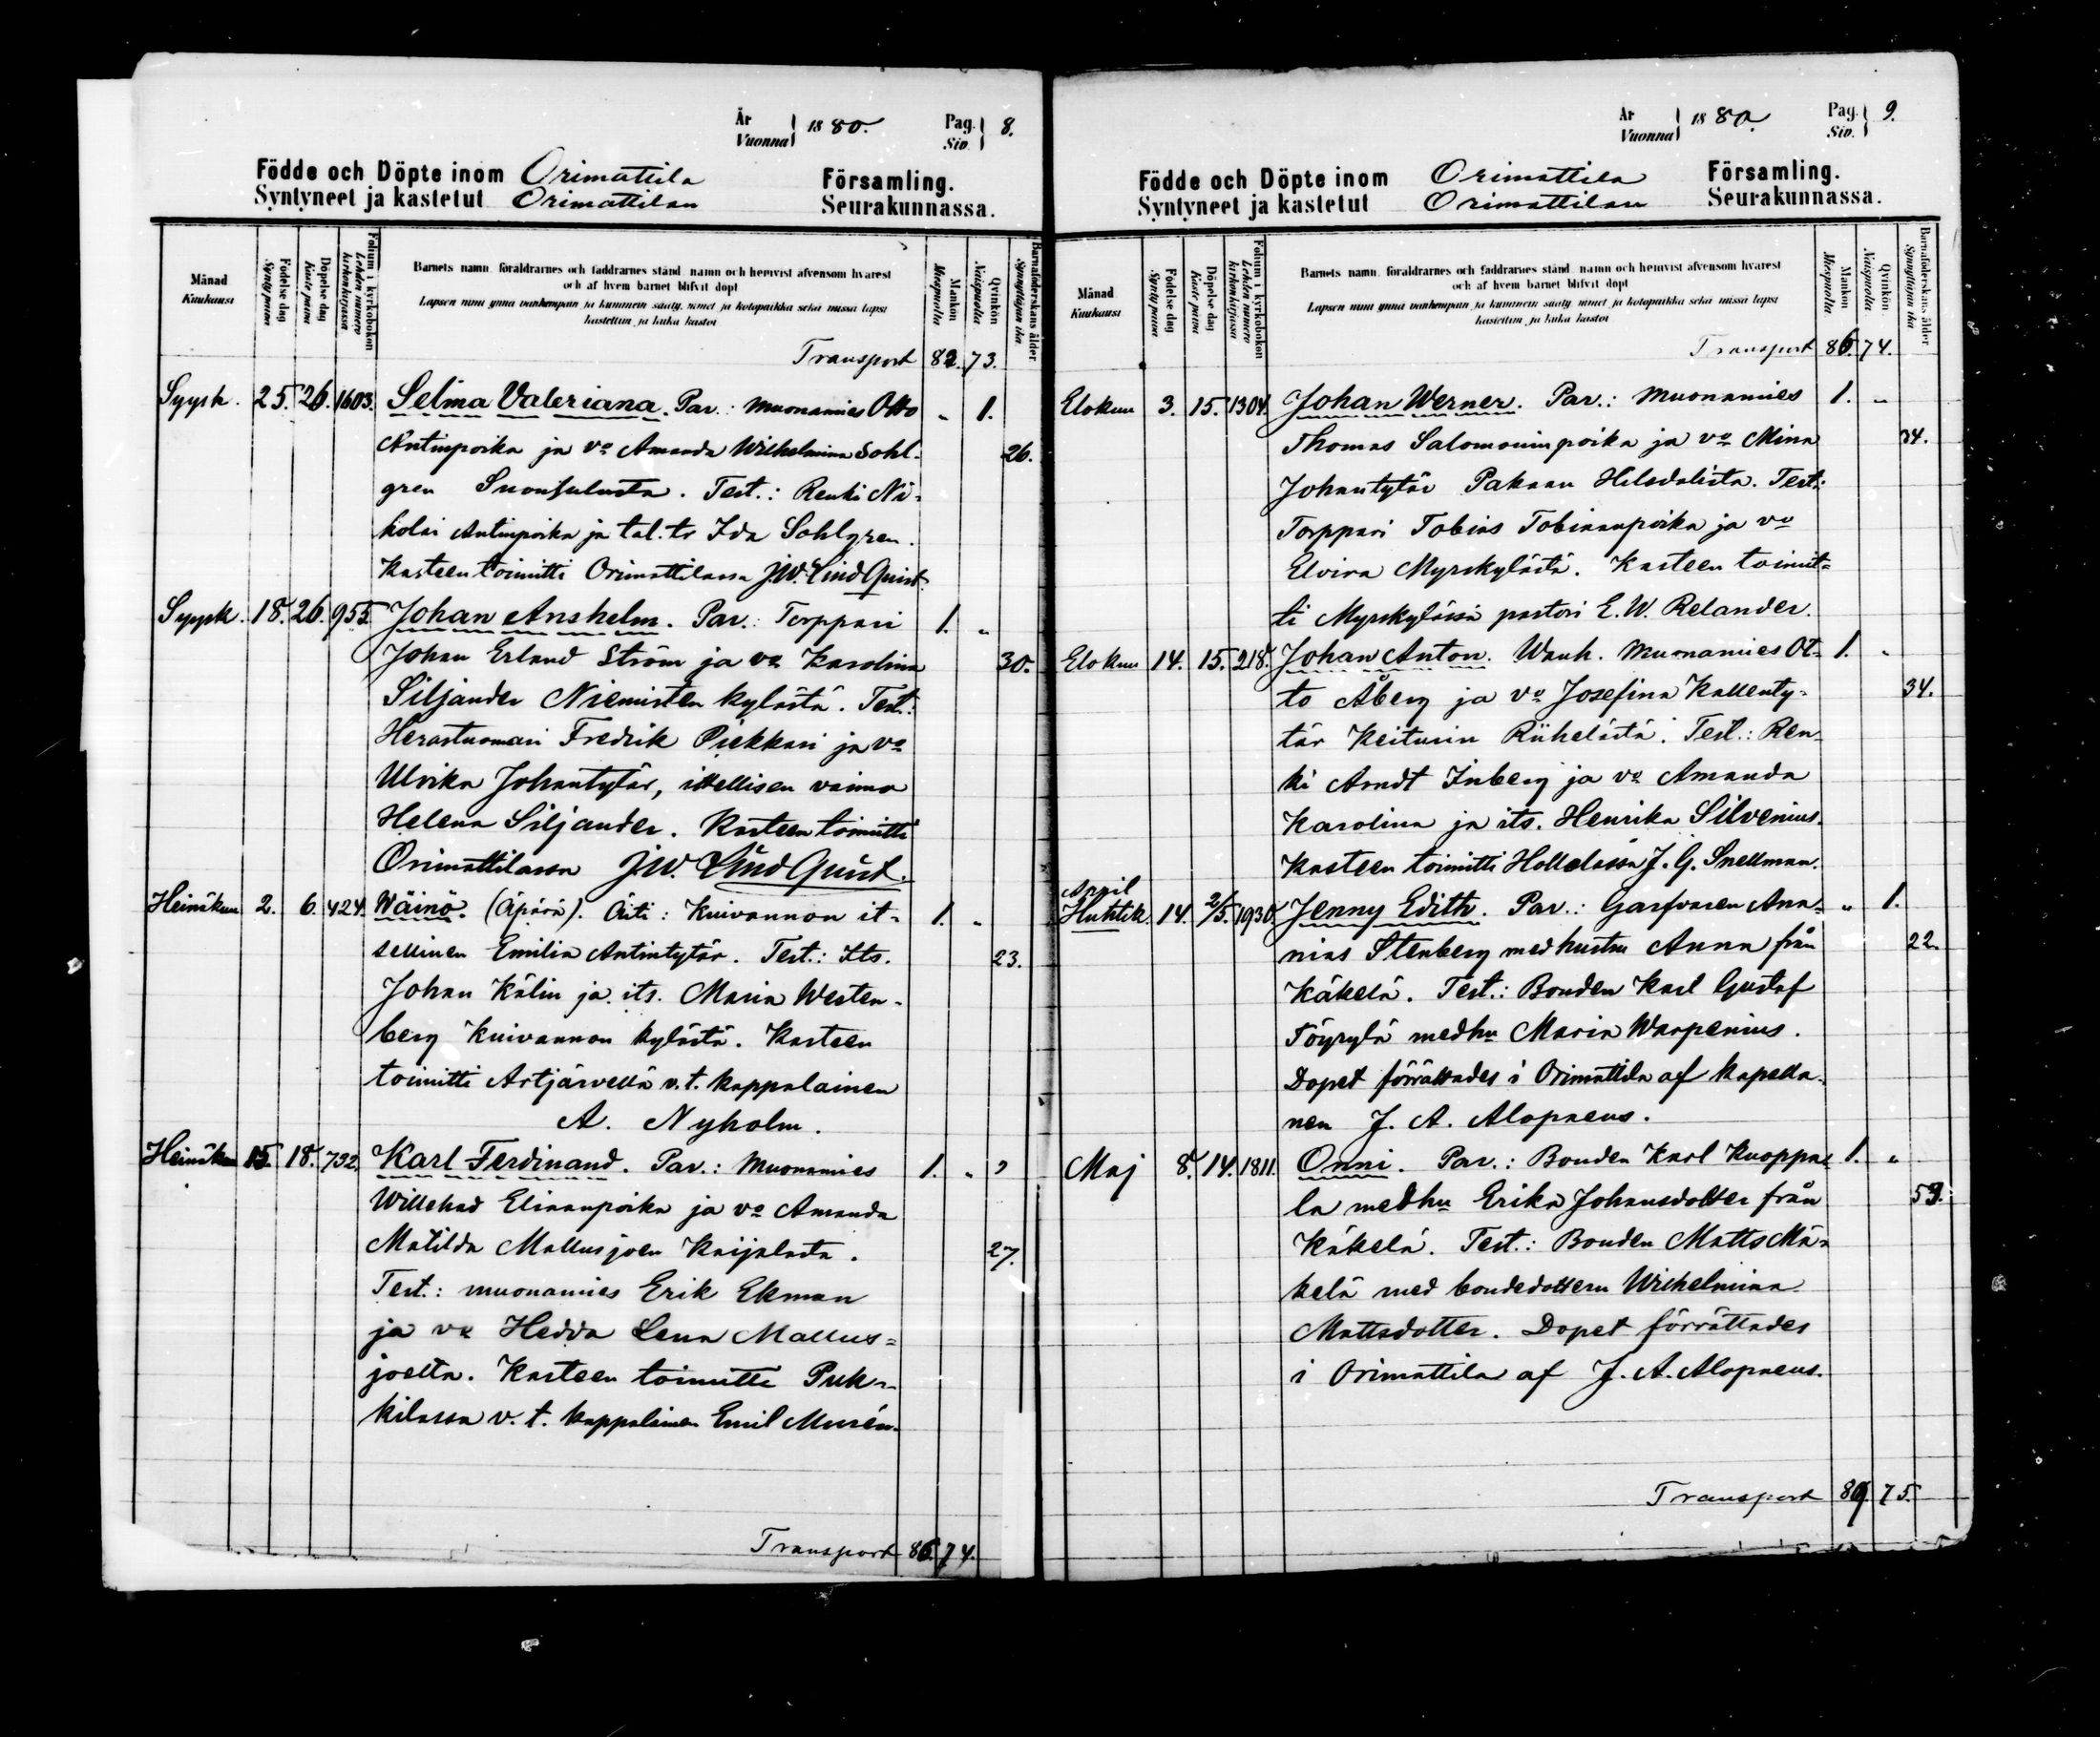 År
Vuonna 1880. Pag. Siv. 8.
Födde och Döpte inom Orimattila Församling.
Syntyneet ja kastetut Orimattilan Seurakunnassa.
Månad
Kuukausi
Födelse dag
Syntypäivä
Döpelse dag
Kaste päivä
Folium i kyrkoboken
Lehden numero kirkonkirjassa
Barnets namn, föräldrarnes och faddrarnes stånd, namn och hemvist äfvensom hvarest
och af hvem barnet blifvit döpt
Lapsen nimi ynnä vanhempain ja kummein sääty, nimet ja kotopaikka sekä missä lapsi
kastettiin ja kuka kastoi
Mankön
Miespuolia
Qvinkön
Naispuolia
Barnaföderskans ålder
Synnyttäjän ikä
Transport 82. 73.
Syysk. 25. 26. 1603. Selma Valeriana. Par.: Muonamies Otto „ 1.
Antinpoika ja vo Amanda Wilhelmina Sohl- 26.
gren Suonsulusta. Test.: Renki Ni-
kolai Antinpoika ja tal. tr Ida Sohlgren.
Kasteen toimitti Orimattilassa J.W. LindQuist.
Syysk. 18. 26. 955. Johan Anshelm. Par.: Torppari 1. „
Johan Erland Ström ja vo Karolina 30.
Siljander Niemisten kylästä. Test.:
Herastuomari Fredrik Piekkari ja vo
Ulrika Johantytär, itsellisen vaimo
Helena Siljander. Kasteen toimitti
Orimattilassa J.W. LindQuist.
Heinäkuu 2. 6. 424. Wäinö. (Äpärä). Äiti: Kuivannon it- 1. „
sellinen Emilia Antintytär. Test.: Its. 23.
Johan Kälin ja its. Maria Westen-
berg Kuivannon kylästä. Kasteen
toimitti Artjärvellä v.t. kappalainen
A. Nyholm.
Heinäkuu 15. 18. 732. Karl Ferdinand. Par.: Muonamies 1. „
Willehad Elianpoika ja vo Amanda
Matilda Mallusjoen Kaijalasta. 27.
Test.: muonamies Erik Ekman
ja vo Hedda Lena Mallus-
joelta. Kasteen toimitti Puk-
kilassa v.t. kappalainen Emil Murén.
Transport 86. 74.
År
Vuonna 1880. Pag. Siv. 9.
Födde och Döpte inom Orimattila Församling.
Syntyneet ja kastetut Orimattilan Seurakunnassa.
Månad
Kuukausi
Födelse dag
Syntypäivä
Döpelse dag
Kaste päivä
Folium i kyrkoboken
Lehden numero kirkonkirjassa
Barnets namn, föräldrarnes och faddrarnes stånd, namn och hemvist äfvensom hvarest
och af hvem barnet blifvit döpt
Lapsen nimi ynnä vanhempain ja kummein sääty, nimet ja kotopaikka sekä missä lapsi
kastettiin ja kuka kastoi
Mankön
Miespuolia
Qvinkön
Naispuolia
Barnaföderskans ålder
Synnyttäjän ikä
Transport 86. 74.
Elokuu 3. 15. 1304. Johan Werner. Par.: Muonamies 1. „
Thomas Salomoninpoika ja vo Mina 34.
Johantytär Pakaan Hilsdalista. Test.:
Torppari Tobias Tobiaanpoika ja vo
Elvira Myrskylästä. Kasteen toimit-
ti Myrskylässä pastori E.W. Relander.
Elokuu 14. 15. 218. Johan Anton. Wanh. Muonamies Ot- 1. „
to Åberg ja vo Josefina Kallenty- 34.
tär Keiturin Riihelästä. Test.: Ren-
ki Arndt Inberg ja vo Amanda
Karolina ja its. Henrika Silvenius.
Kasteen toimitti Hollolassa J. G. Snellman.
April
Huhtik. 14. 2/5. 1930. Jenny Edith. Par.: Garfvaren Ana- „ 1.
nias Stenberg med hustru Anna från 22.
Käkelä. Test.: Bonden Karl Gustaf
Töyrylä med hu Maria Warpenius.
Dopet förrättades i Orimattila af kapella-
nen J. A. Alopaeus.
Maj 8. 14. 1811. Onni. Par.: Bonden Karl Knoppa- 1. „
la med hu Erika Johansdotter från
Käkelä. Test.: Bonden Matts Mä-
kelä med bondedottern Wilhelmina
Mattsdotter. Dopet förrättades
i Orimattila af J. A. Alopaeus.
Transport 89. 75.